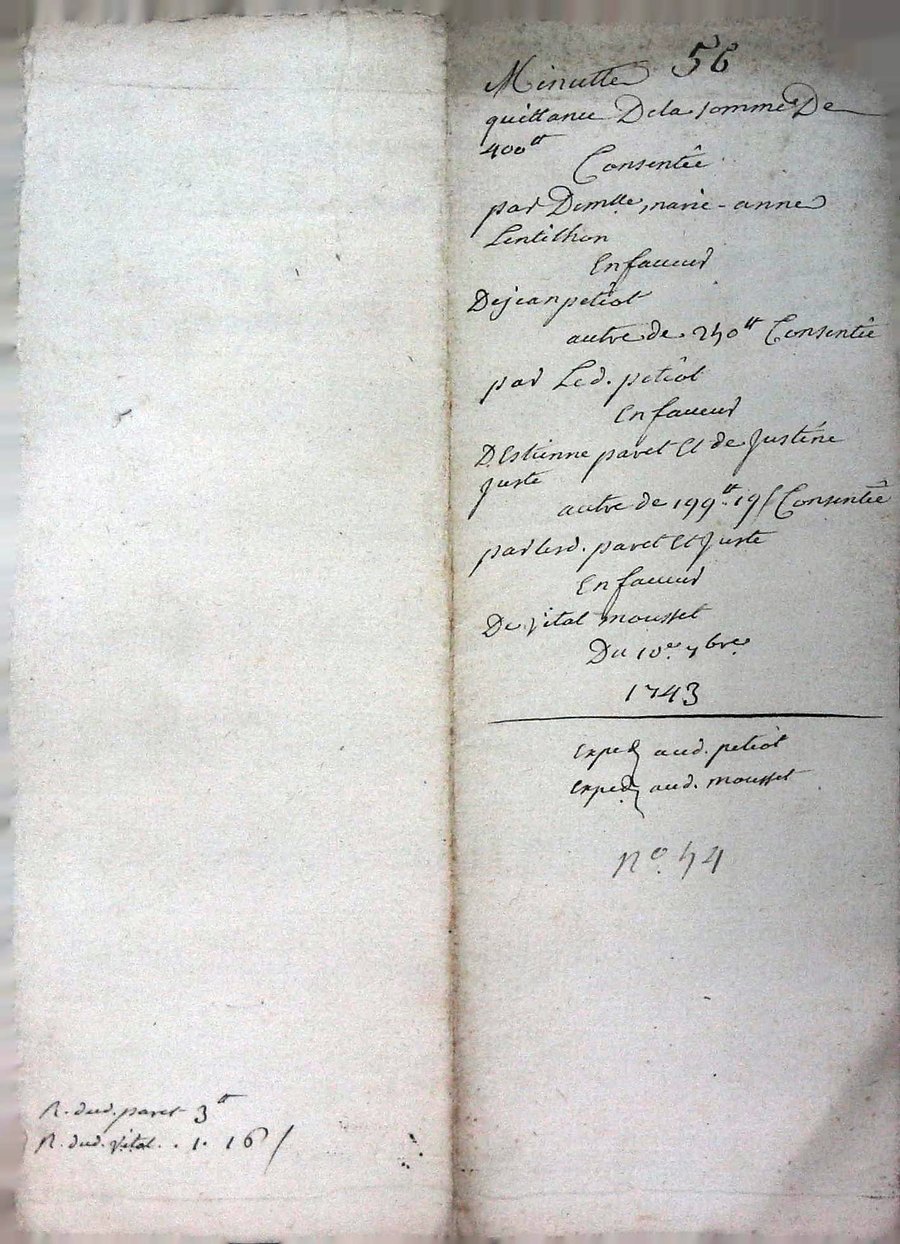 56
Minutte
quittance Dela somme De
400tt
Consentêe
par Demlle marie-anne
Lentilhon
En faueur
De jean petiot
autre de 240tt Consentêe
par Led. petiot
En faueur
D'Estienne paret Et de Justêne
Juste
autre de 199tt 19ſ Consentêe
par lesd. paret Et Juste
En faueur
De vital mousset
Du 10e 7bre
1743
Exped aud. petiot
Exped aud. mousset
no. 44
R. dud. paret 3tt
R. dud. vital . 1. 16ſ